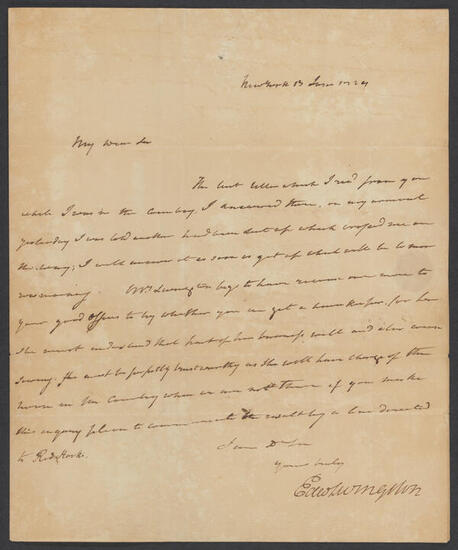 New York 13 June 1829
My Dear Sir
The last letter which I recd from you
while I was in the Country I answered there, on my arrival
yesterday I was told another had been sent up which crossed me on
the way; I will answer it as soon as I get it which will be to morrow
morning. Mrs Livingston begs to have recourse once more to
your good offices to try whether you can get a housekeeper for her
She must understand that part of her business well and also know
sewing. She must be perfectly trustworthy as she will have charge of the
house in the Country when we are not there if you make
this inquiry please to communicate the result by a line directed
to Red Hook.
I am D Sir
yours truly
Edw Livingston